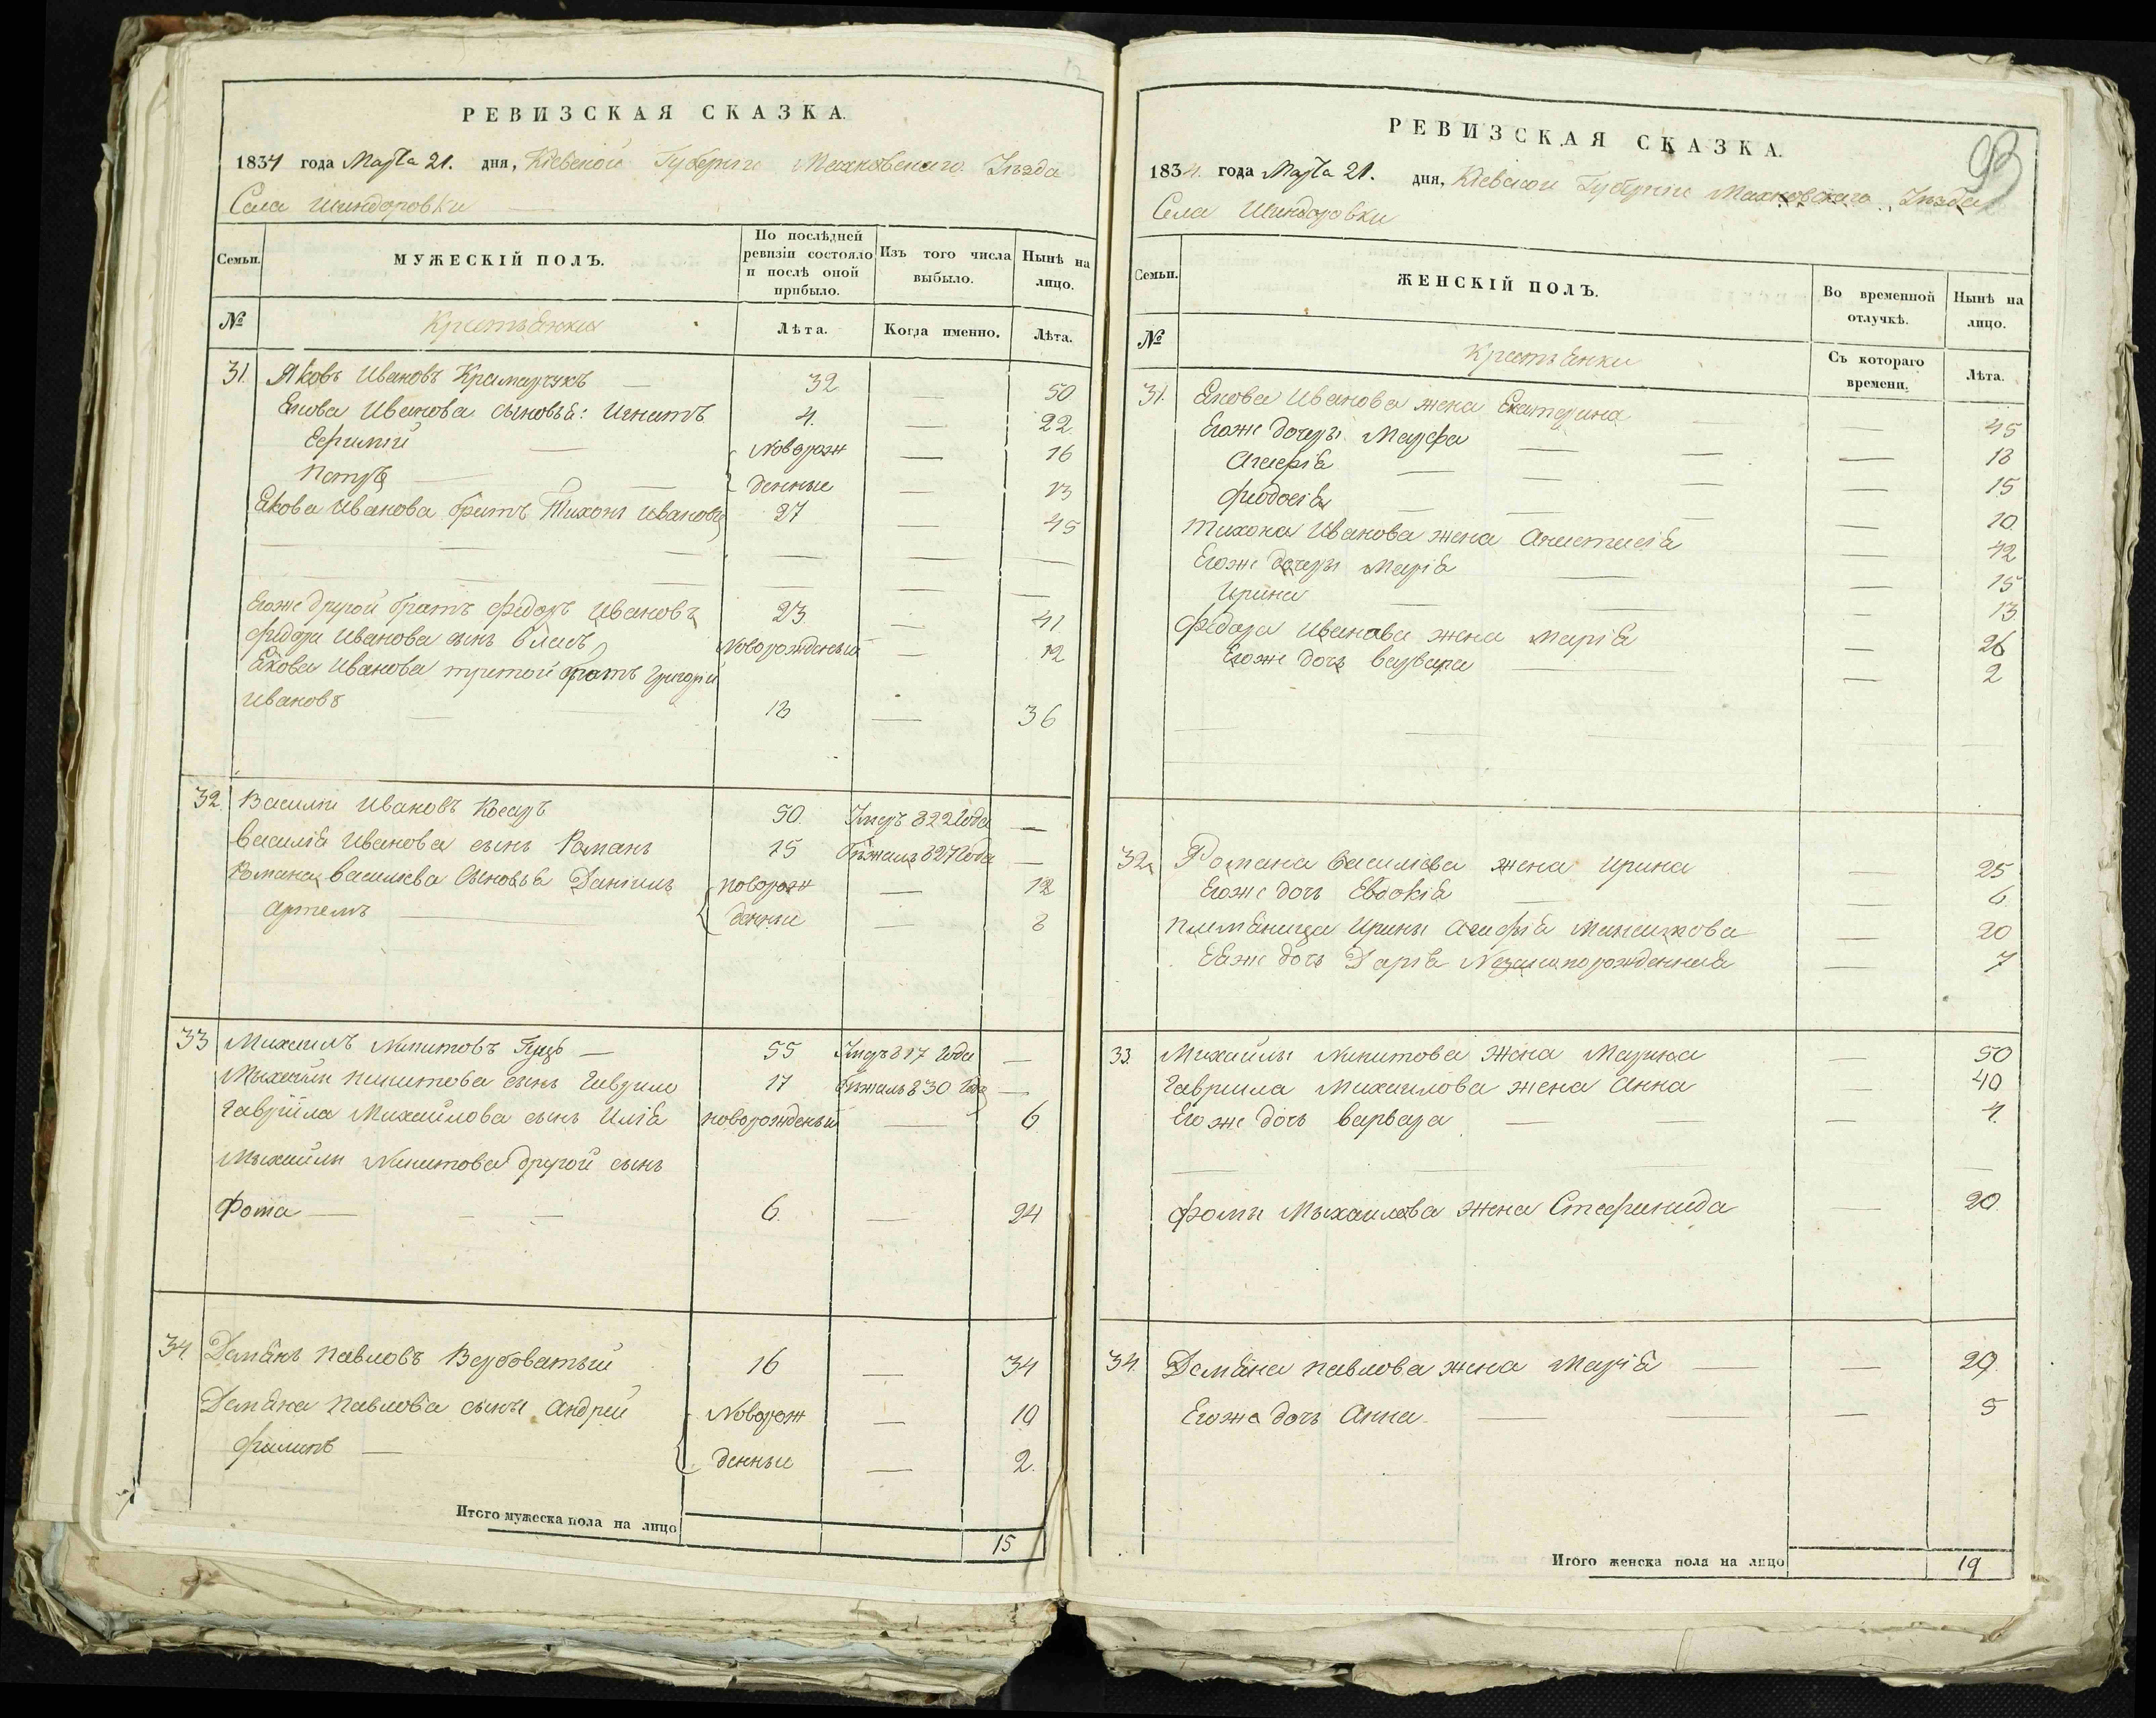 РЕВИЗСКАЯ СКАЗКА.
1834 года Марта 21. дня, Кіевской Губерніи Махновскаго Уезда
Села Шендоровки
Семьи.
МУЖЕСКІЙ ПОЛЪ.
По послѣдней ревизіи состояло и послѣ оной прибыло.
Изъ того числа выбыло.
Нынѣ на лицо.
№
Лѣта.
Когда именно.
Лѣта.
31. Яковъ Ивановъ Крамарчукъ — 32 — 50
Якова Иванова сыновья: Игнатъ 4. — 22
Ефимій — Новорож — 16
Петръ — денные — 13
Якова Иванова братъ Тихонъ Ивановъ 27 — 45
Егоже другой братъ Федоръ Ивановъ 23 — 41
Федора Иванова сынъ Власъ Новорожденый — 12
Якова Иванова третой братъ Григорій
Ивановъ — 18 — 36
32. Василій Ивановъ Косаръ 50. Умеръ 822 Года —
Василія Иванова сынъ Романъ 15 бѣжалъ 827 Года —
Романа Васильева Сыновья Даніилъ новорож — 12
Артемъ — денные — 8
33 Михаилъ Никитовъ — 55 Умеръ 817 Года —
Михайлы Никитова сынъ Гаврило 17 Бѣжалъ 830 Года —
Гавріила Михайлова сынъ Илія новорожденый — 6
Михайлы Никитова другой сынъ
Фома — 6. — 24
34. Демянъ Павловъ Вербоватый 16 — 34
Демяна Павлова сыны Андрей Новорож — 10
Филипъ — денные — 2.
Итого мужеска пола на лицо 15
РЕВИЗСКАЯ СКАЗКА.
93
1834. года Марта 21. дня, Кіевской Губерніи Махновскаго Уезда
Села Шендоровки
Семьи.
ЖЕНСКІЙ ПОЛЪ.
Во временной отлучкѣ.
Нынѣ на лицо.
№
Съ котораго времени.
Лѣта.
31. Якова Иванова жена Екатерина — 45
Егоже дочеры Марфа — 18
Агафія — 15
Феодосія — 10
Тихона Иванова жена Анастасія — 42
Егоже дочеры Марія — 15
Ирина — 13
Федора Иванова жена Марія — 26
Егоже дочь Варвара — 2
32. Романа Васильева жена Ирина — 25
Егоже дочь Евдокія — 6
Племяница Ирины Агафія — 20
Еяже дочь Дарія — 7
33. Михайлы Никитова жена Марина — 50
Гаврила Михаилова жена Анна — 40
Его же дочь Варвара — 4.
Фомы Михаилова жена Стефанида — 20.
34. Демяна Павлова жена Марія — 29.
Егоже дочь Анна — 5
Итого женска пола на лицо 19